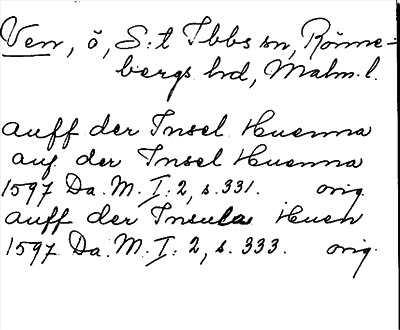 Ven, ö, S:t Ibbs sn, Rönne-
bergs hd, Malm. l.
auff der Insel Huenna
auf der Insel Huenna
1597 Da. M. I: 2, s. 331. orig.
auff der Insula Huen
1597 Da. M. I: 2, s. 333. orig.